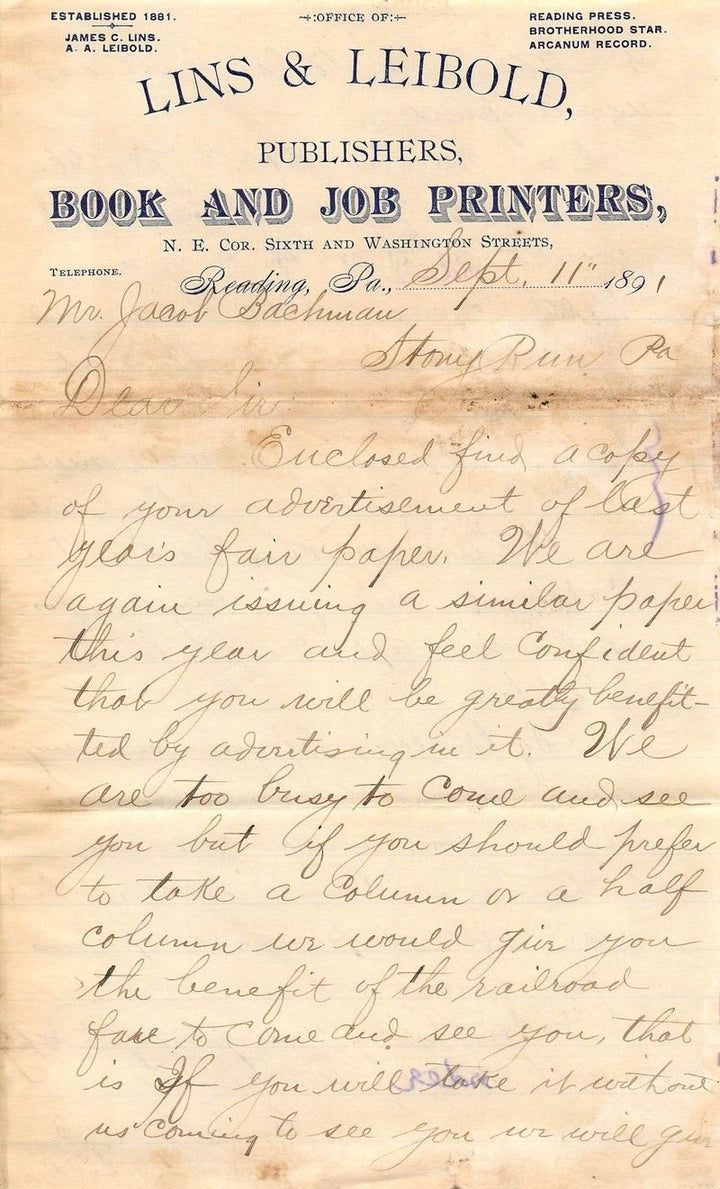 ESTABLISHED 1881.
JAMES C. LINS.
A. A. LEIBOLD.
OFFICE OF:
READING PRESS.
BROTHERHOOD STAR.
ARCANUM RECORD.
LINS & LEIBOLD,
PUBLISHERS,
BOOK AND JOB PRINTERS,
N. E. COR. SIXTH AND WASHINGTON STREETS,
TELEPHONE.
Reading, Pa., Sept. 11" 1891
Mr. Jacob Bachman
Stony Run Pa
Dear Sir:
Enclosed find a copy
of your advertisement of last
year's fair paper. We are
again issuing a similar paper
this year and feel confident
that you will be greatly benefit-
ted by advertising in it. We
are too busy to come and see
you but if you should prefer
to take a column or a half
column we would give you
the benefit of the railroad
fare to come and see you, that
is If you will take it without
us coming to see you we will give